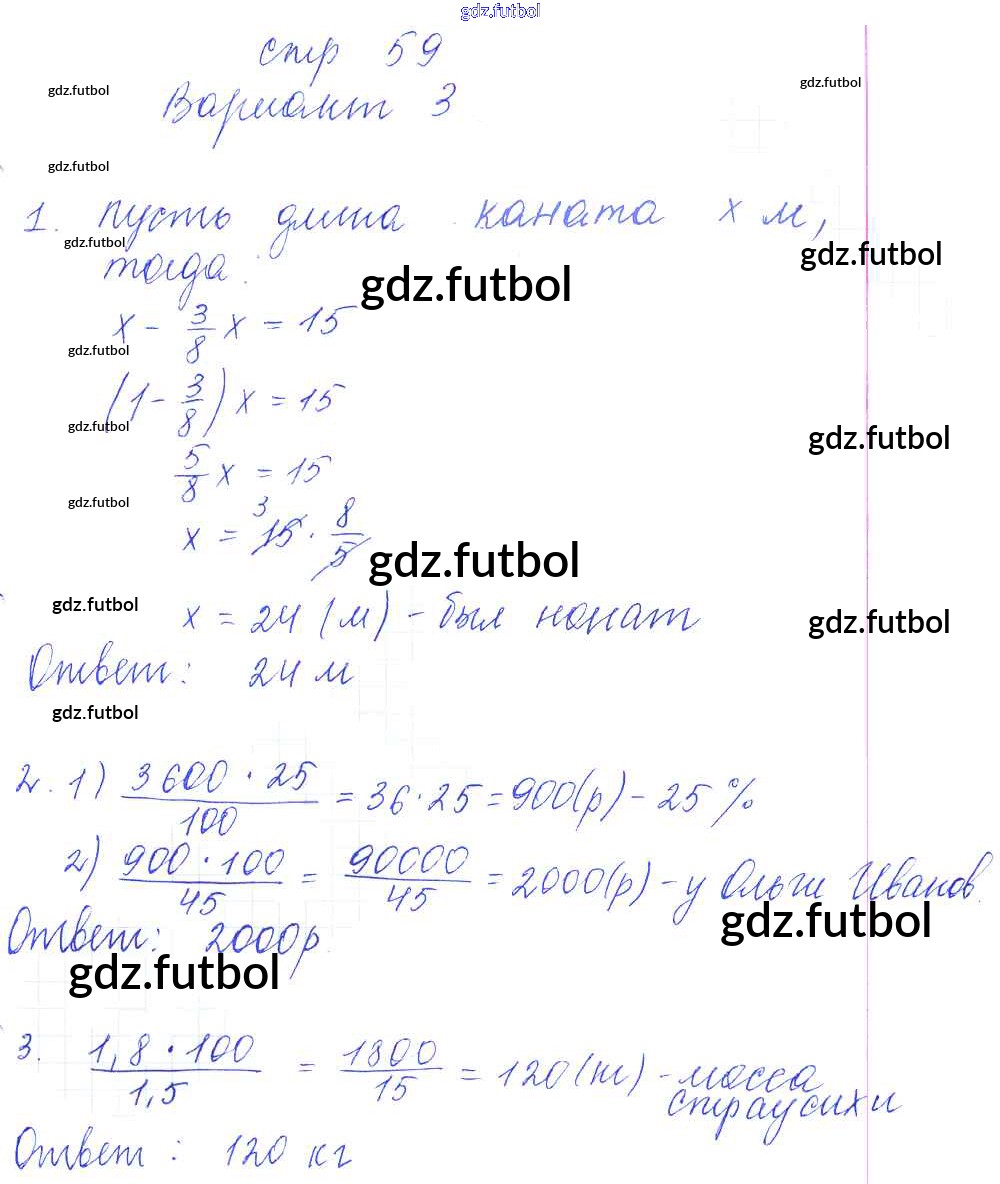 gdz.futbol
стр 59
gdz.futbol
gdz.futbol
Вариант 3
gdz.futbol
1. пусть длина каната х м,
gdz.futbol
gdz.futbol
тогда:
gdz.futbol
x - 3/8 x = 15
gdz.futbol
(1 - 3/8) x = 15
gdz.futbol
gdz.futbol
5/8 x = 15
gdz.futbol
3
x = 15 · 8/5
gdz.futbol
gdz.futbol
gdz.futbol
x = 24 (м) - был нонат
Ответ: 24 м
gdz.futbol
2. 1) 3600 · 25 / 100 = 36 · 25 = 900(р) - 25 %
2) 900 · 100 / 45 = 90000 / 45 = 2000(р) - у Ольги Иванов
gdz.futbol
Ответ: 2000р.
gdz.futbol
3. 1,8 · 100 / 1,5 = 1800 / 15 = 120 (кг) - масса
страусихи
Ответ: 120 кг